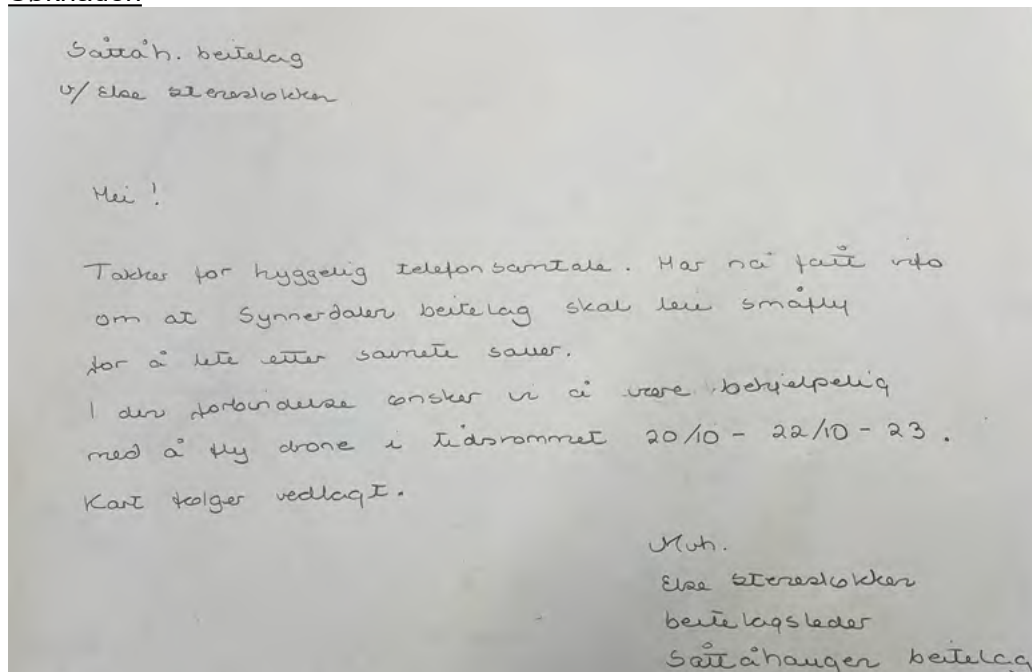 Såttåh. beitelag
v/ Else Stenesløkken
Hei !
Takker for hyggelig telefonsamtale. Har nå fått info
om at Synnerdalen beitelag skal leie småfly
for å lete etter savnete sauer.
I den forbindelse ønsker vi å være behjelpelig
med å fly drone i tidsrommet 20/10 - 22/10 - 23 .
Kart følger vedlagt.
Mvh.
Else Stenesløkken
beitelagsleder
Såttåhaugen beitelag